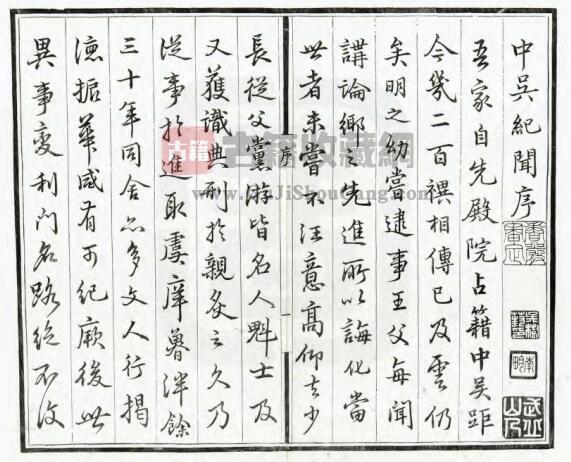 中吳紀聞序
吾家自先殿院占籍中吳距
今幾二百禩相傳已及雲仍
矣明之幼嘗逮事王父每聞
講論鄉之先進所以誨化當
世者未嘗不注意高仰之少
序
一
長從父黨游皆名人魁士及
又獲識典刑於親炙之久乃
從事於進取虞庠魯泮餘
三十年同舍亦多文人行揭
悳振華咸有可紀厥後世
異事變利門名路絕不復
古籍
古籍收藏網